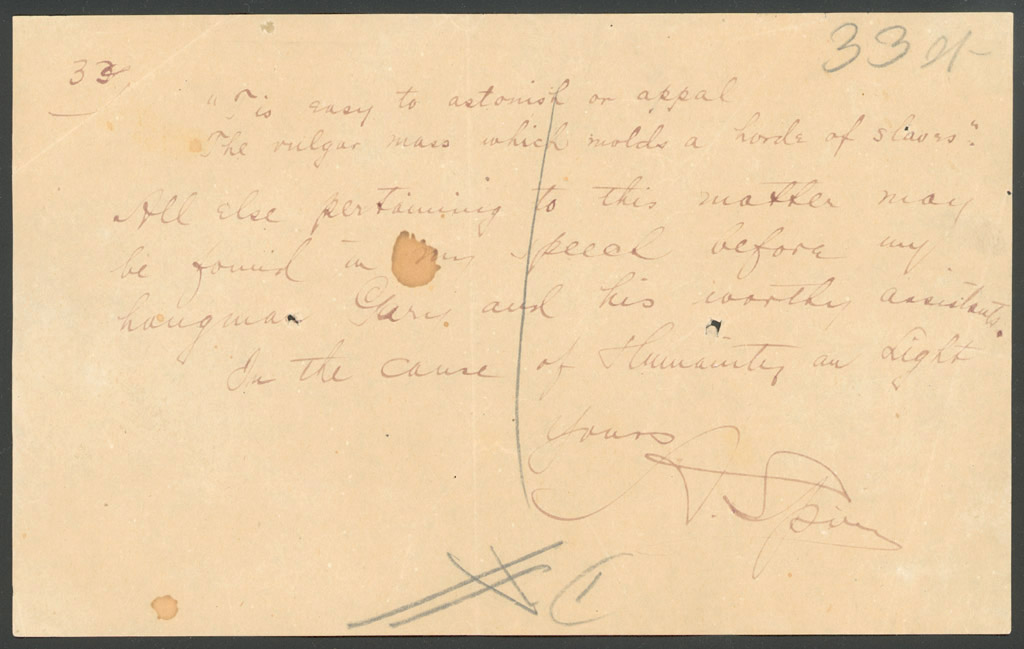 33
33
"Tis easy to astonish or appal
The vulgar mass which molds a horde of slaves".
All else pertaining to this matter may
be found in my speech before my
hangman Gary and his worthy assistants.
In the cause of Humanity an Light
Yours
A. Spies